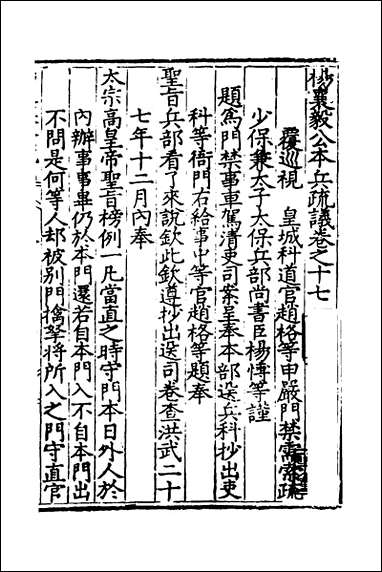 楊襄毅公本兵疏議卷之十七
覆巡視　皇城科道官趙格等申嚴門禁需索疏
少保兼太子太保兵部尚書臣楊博等謹
題爲門禁事車駕清吏司案呈奉本部送兵科抄出吏
科等衙門右給事中等官趙格等題奉
聖旨兵部看了來說欽此欽遵抄出送司卷查洪武二十
七年十二月內奉
太宗高皇帝聖旨榜例一凡當直之時守門本日外人於
內辦事事畢仍於本門還若自本門入不自本門出
不問是何等人却被別門擒拏將所入之門守直官